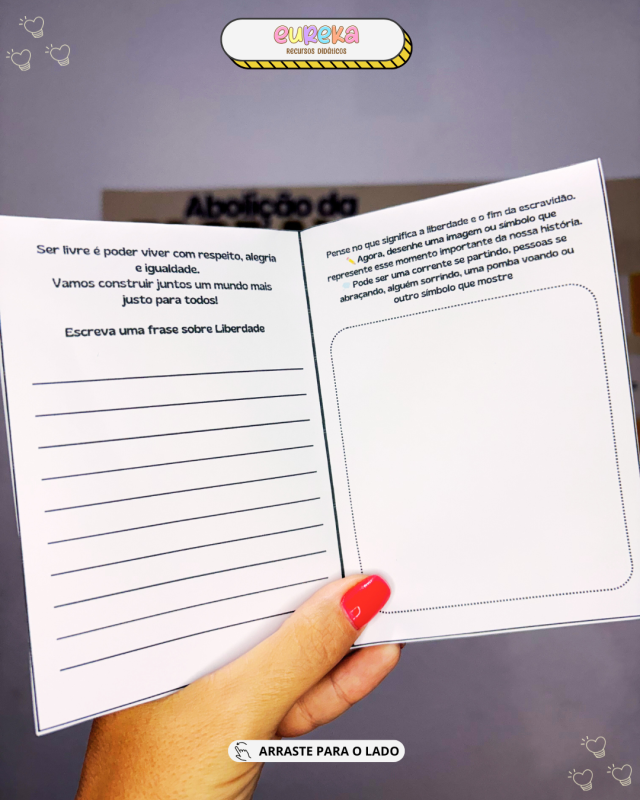 eureka
RECURSOS DIDÁTICOS
Abolição da
Ser livre é poder viver com respeito, alegria
e igualdade.
Vamos construir juntos um mundo mais
justo para todos!
Escreva uma frase sobre Liberdade
Pense no que significa a liberdade e o fim da escravidão.
Agora, desenhe uma imagem ou símbolo que
represente esse momento importante da nossa história.
Pode ser uma corrente se partindo, pessoas se
abraçando, alguém sorrindo, uma pomba voando ou
outro símbolo que mostre
ARRASTE PARA O LADO